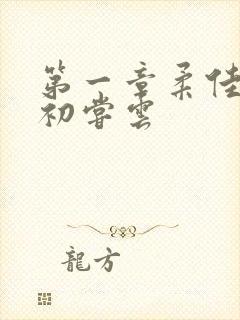 第一章柔佳
初嘗雲
龍方